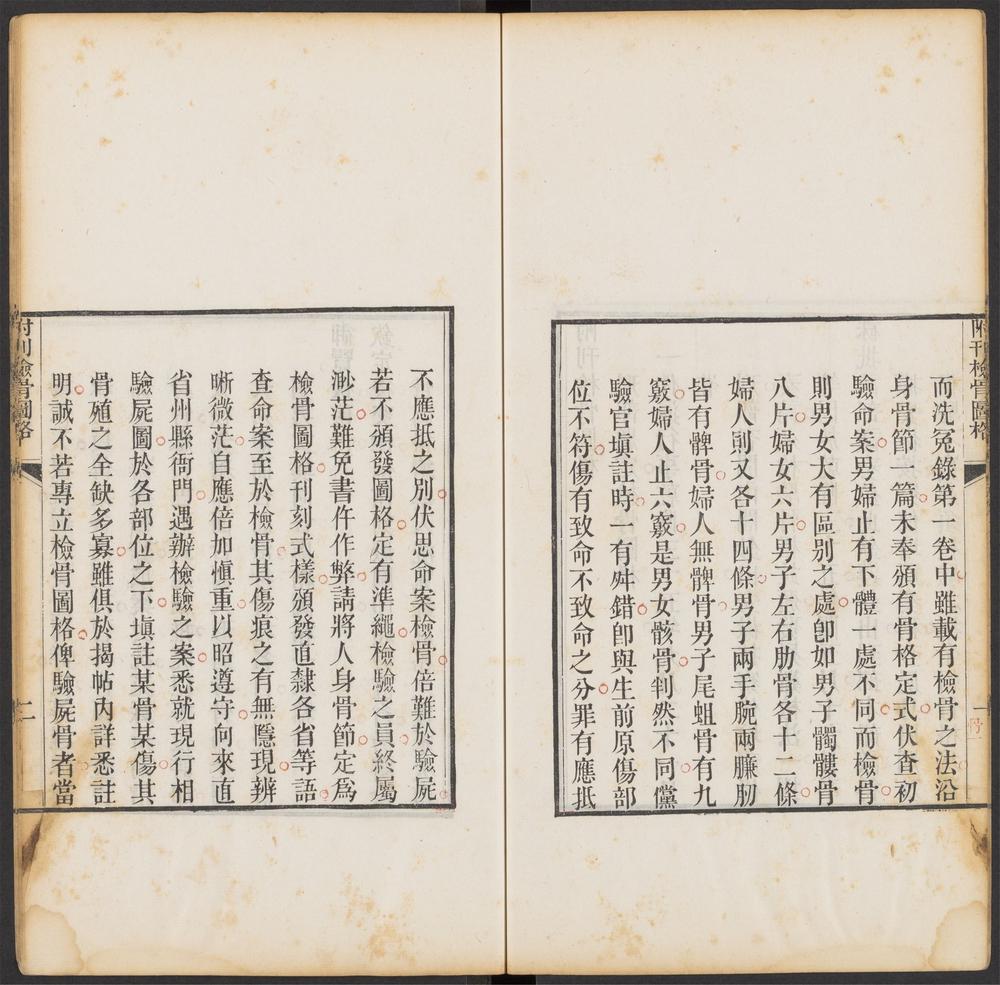 附刊檢骨圖格
一
而洗冤錄第一卷中雖載有檢骨之法沿
身骨節一篇未奉頒有骨格定式伏查初
驗命案男婦止有下體一處不同而檢骨
則男女大有區別之處卽如男子髑髏骨
八片婦女六片男子左右肋骨各十二條
婦人則又各十四條男子兩手腕兩臁肕
皆有髀骨婦人無髀骨男子尾蛆骨有九
竅婦人止六竅是男女骸骨判然不同儻
驗官塡註時一有舛錯卽與生前原傷部
位不符傷有致命不致命之分罪有應抵
不應抵之別伏思命案檢骨倍難於驗屍
若不頒發圖格定有準繩檢驗之員終屬
渺茫難免書仵作弊請將人身骨節定爲
檢骨圖格刊刻式樣頒發直隸各省等語
查命案至於檢骨其傷痕之有無隱現辨
晰微茫自應倍加愼重以昭遵守向來直
省州縣衙門遇辦檢驗之案悉就現行相
驗屍圖於各部位之下塡註某骨某傷其
骨殖之全缺多寡雖俱於揭帖內詳悉註
明誠不若專立檢骨圖格俾驗屍骨者當
附刊檢骨圖格
二